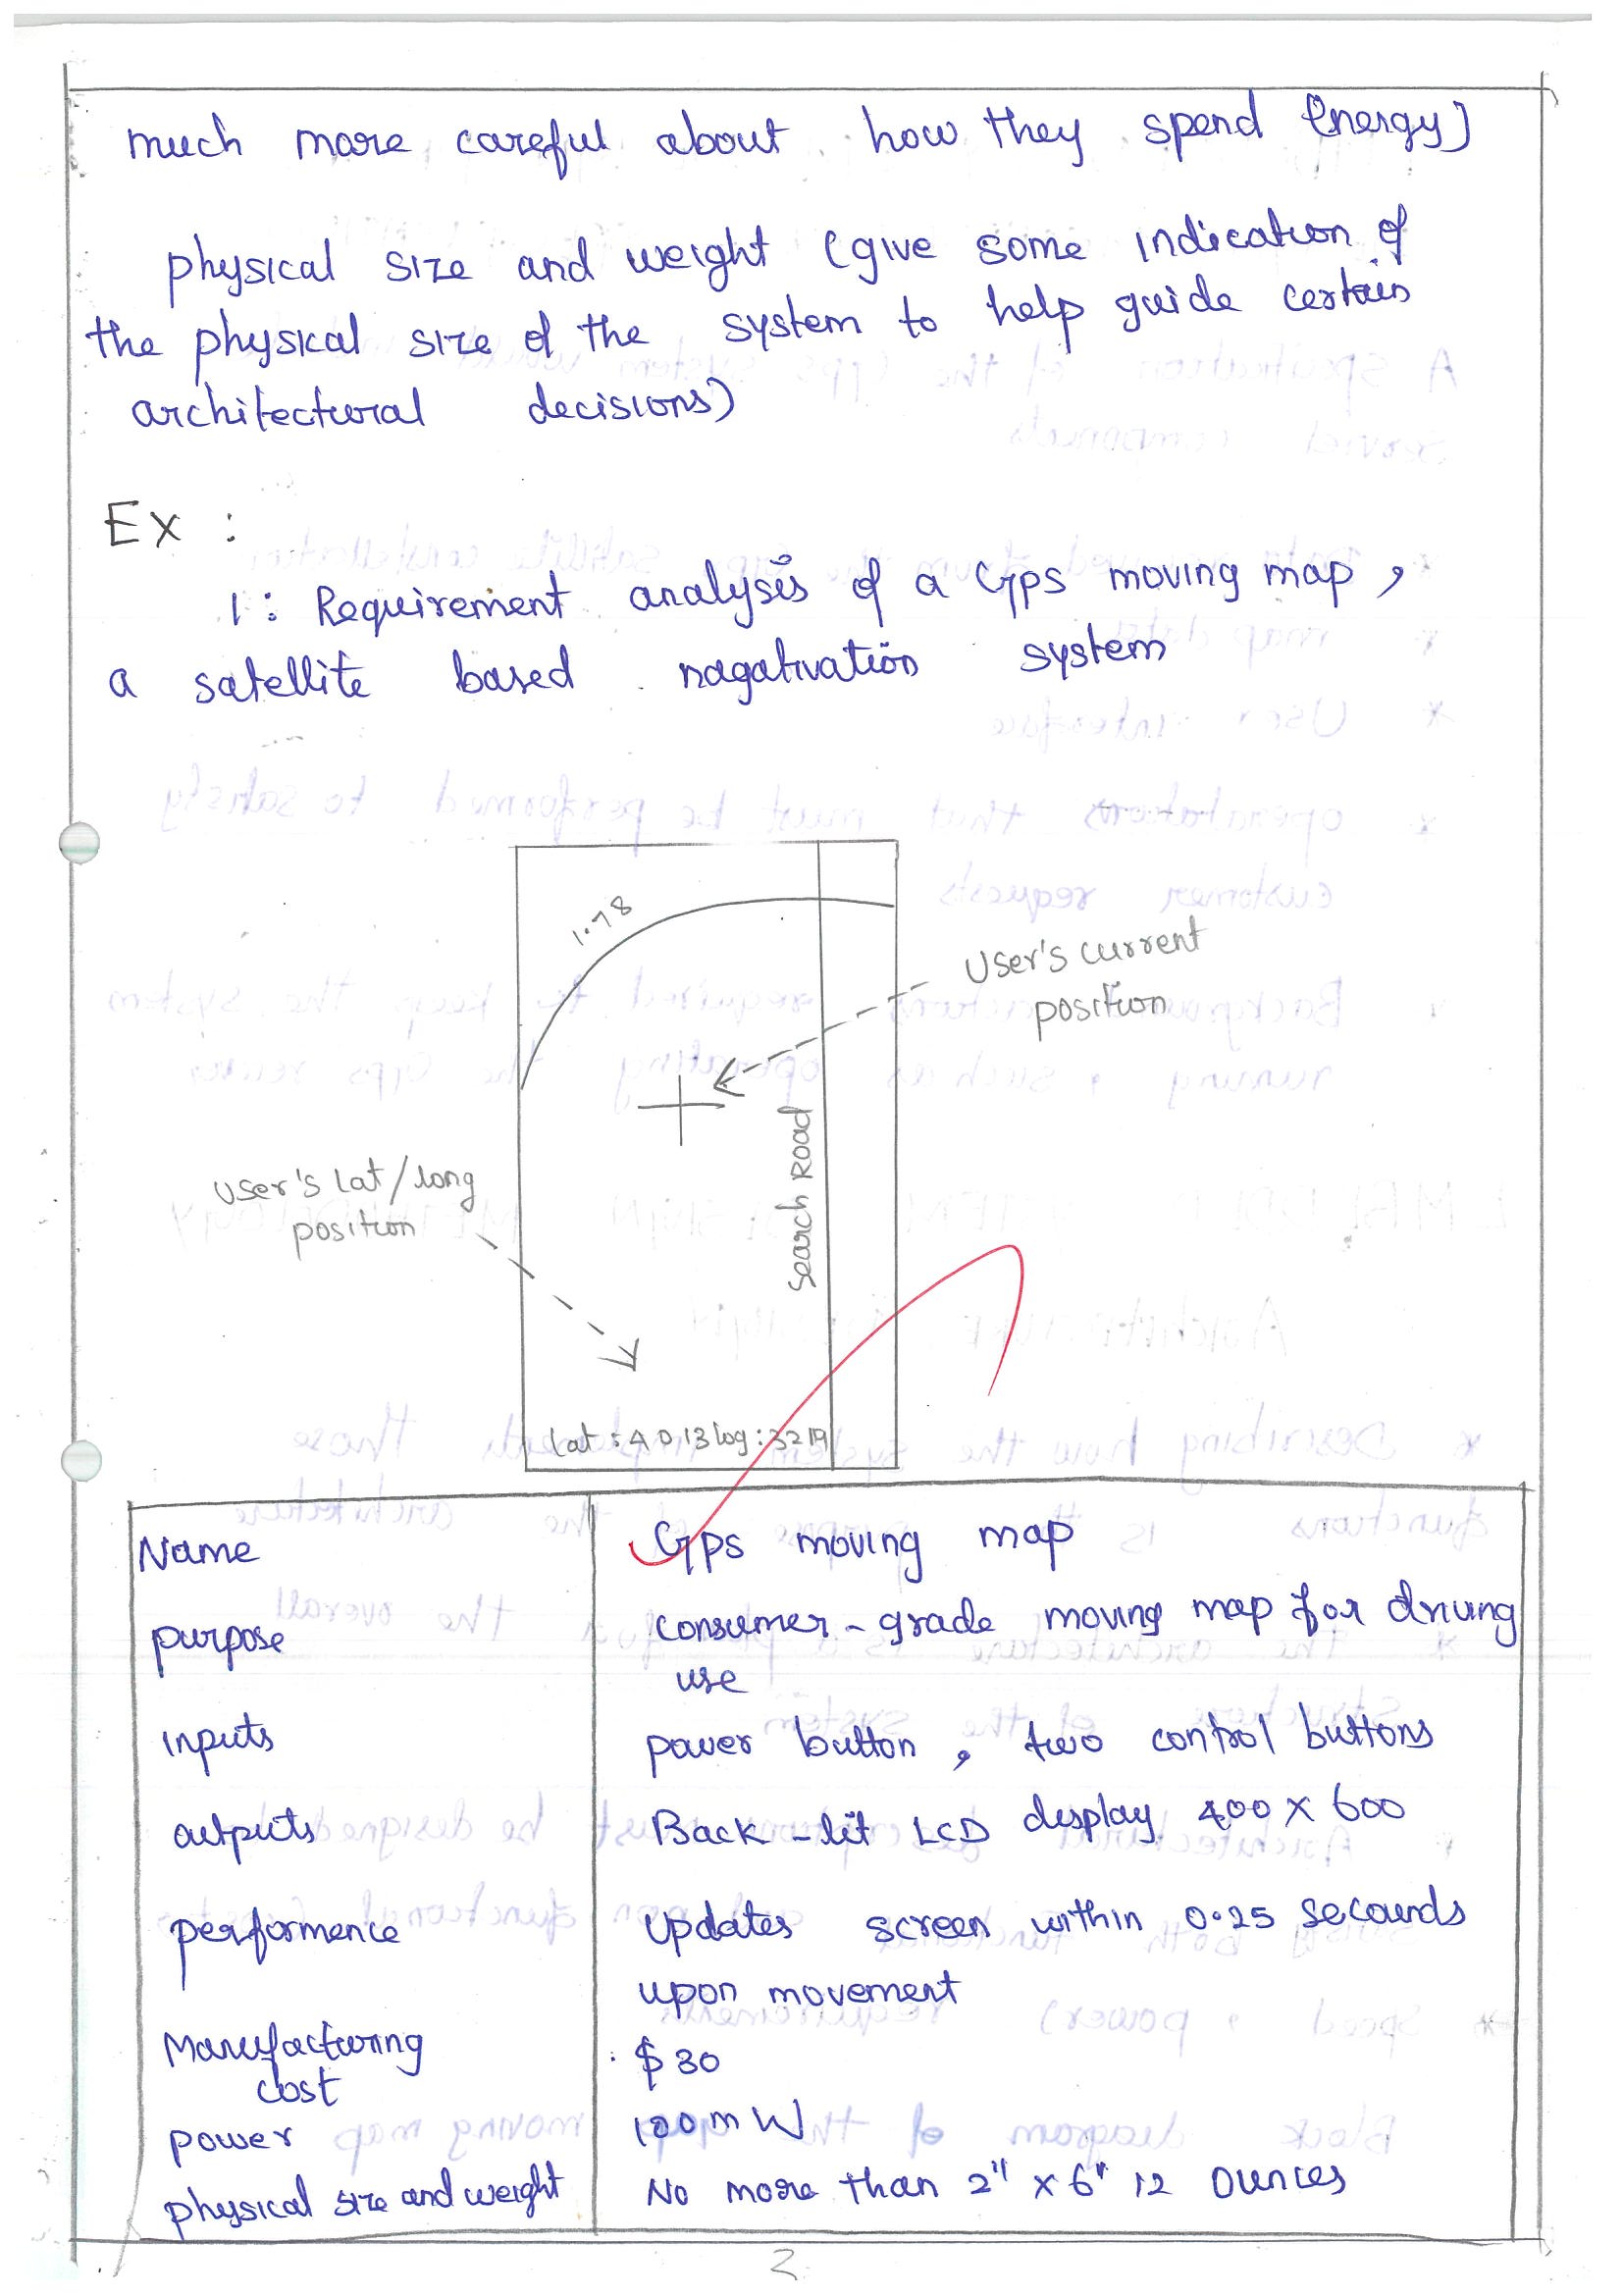 much more careful about how they spend energy)
physical size and weight (give some indication of
the physical size of the system to help guide certain
architectural decisions)
Ex :
1: Requirement analysis of a GPS moving map ,
a satellite based nagativation system
1.78
User's current
position
Search Road
User's lat/long
position
lat : 40 13 log : 32 19
Name GPS moving map
purpose consumer - grade moving map for driving
use
inputs power button , two control buttons
outputs Back - lit LCD display 400 x 600
performence Updates screen within 0.25 secounds
upon movement
Manufacturing $ 30
cost
power 100 m W
physical size and weight No more than 2" x 6" 12 ounces
2